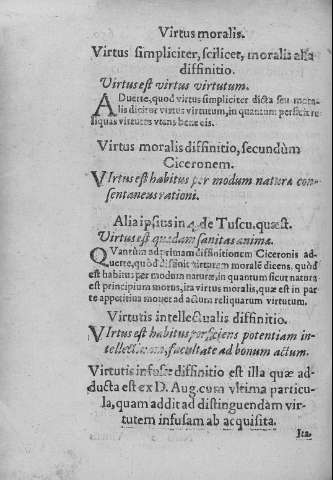 Virtus moralis.
Virtus simpliciter, scilicet, moralis alia
diffinitio.
Virtus est virtus virtutum.
ADuerte, quod virtus simpliciter dicta seu mora-
lis dicitur virtus virtutum, in quantum perficit re
liquas virtutes vtens bene eis.
Virtus moralis diffinitio, secundùm
Ciceronem.
VIrtus est habitus per modum naturæ con-
sentaneus rationi.
Alia ipsius in 4. de Tuscu. quæst.
Virtus est quædam sanitas animæ.
QVantùm ad primam diffinitionem Ciceronis ad-
uerte, quòd diffinit virtutem moralē dicens, quòd
est habitus per modum naturæ, in quantum sicut natura
est principium motus, ita virtus moralis, quæ est in par
te appetitiua mouet ad actum reliquarum virtutum.
Virtutis intellectualis diffinitio.
VIrtus est habitus perficiens potentiam in-
tellectiuam, facultate ad bonum actum.
Virtutis infusæ diffinitio est illa quæ ad-
ducta est ex D. Aug. cum vltima particu-
la, quam addit ad distinguendam vir-
tutem infusam ab acquisita.
Ita